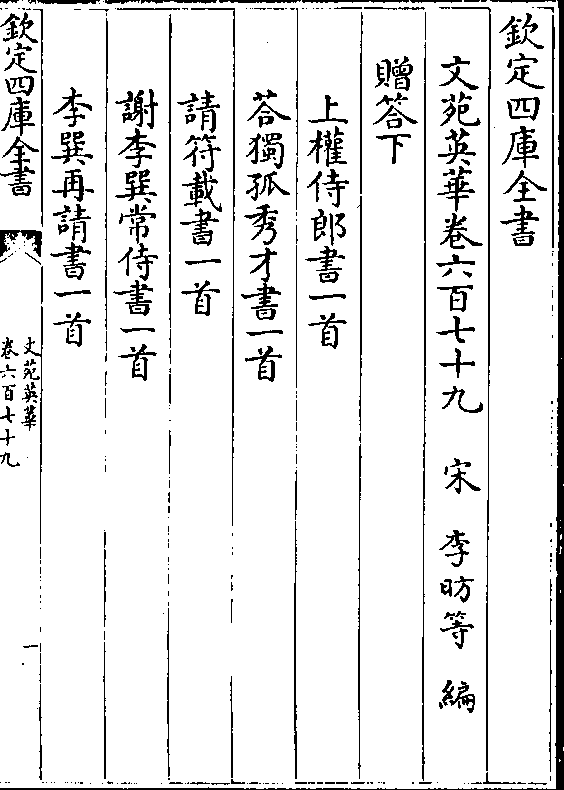 欽定四庫全書
文苑英華卷六百七十九　宋　李昉等　編
贈答下
上權侍郎書一首
荅獨孤秀才書一首
請符載書一首
謝李巽常侍書一首
李巽再請書一首
欽定四庫全書
文苑英華
卷六百七十九
一